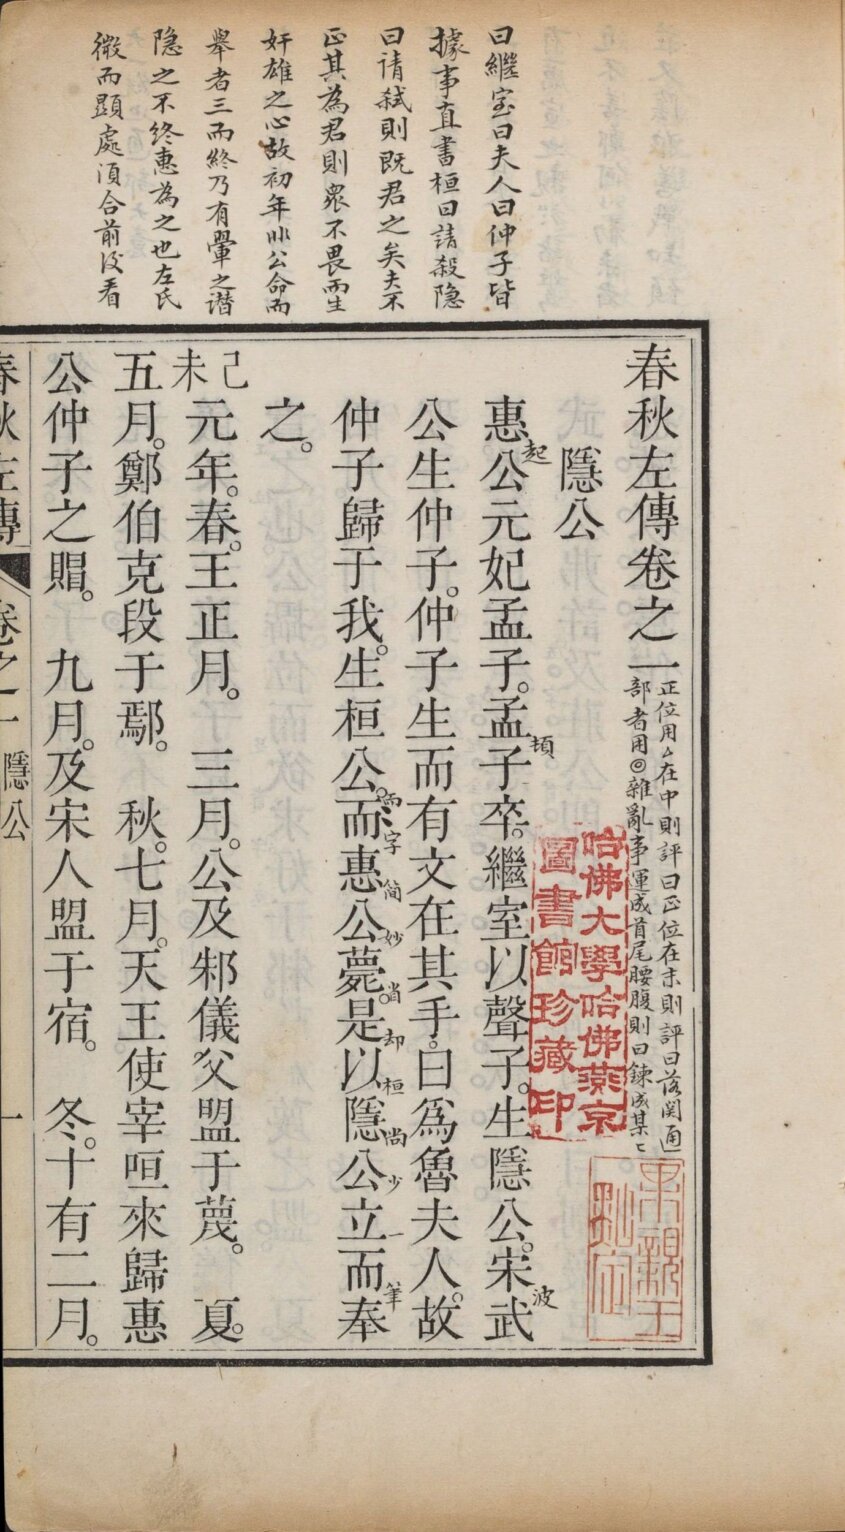 曰繼室曰夫人曰仲子皆
據事直書桓曰請殺隐
曰请弑則既君之矣夫不
正其為君則衆不畏而生
奸雄之心故初年非公命而
舉者三而終乃有翬之谮
隐之不终惠為之也左氏
微而顕處須合前後看
春秋左傳卷之一
正位用△在中則評曰正位在末則評曰落関通
部者用◎雜亂事運成首尾腰腹則曰鍊成某〻
隱公
惠公元妃孟子。孟子卒。繼室以聲子。生隱公。宋武
起
頓
波
公生仲子。仲子生而有文在其手。曰爲魯夫人。故
仲子歸于我。生桓公。而惠公薨。是以隱公立而奉
而字简妙省却桓尚少一筆
之。
己未
元年。春。王正月。 三月。公及邾儀父盟于蔑。 夏。
五月。鄭伯克段于鄢。 秋。七月。天王使宰咺來歸惠
公仲子之賵。 九月。及宋人盟于宿。 冬。十有二月。
春秋左傳 卷之一 隱公 一
哈佛大學哈佛燕京
圖書館珍藏印